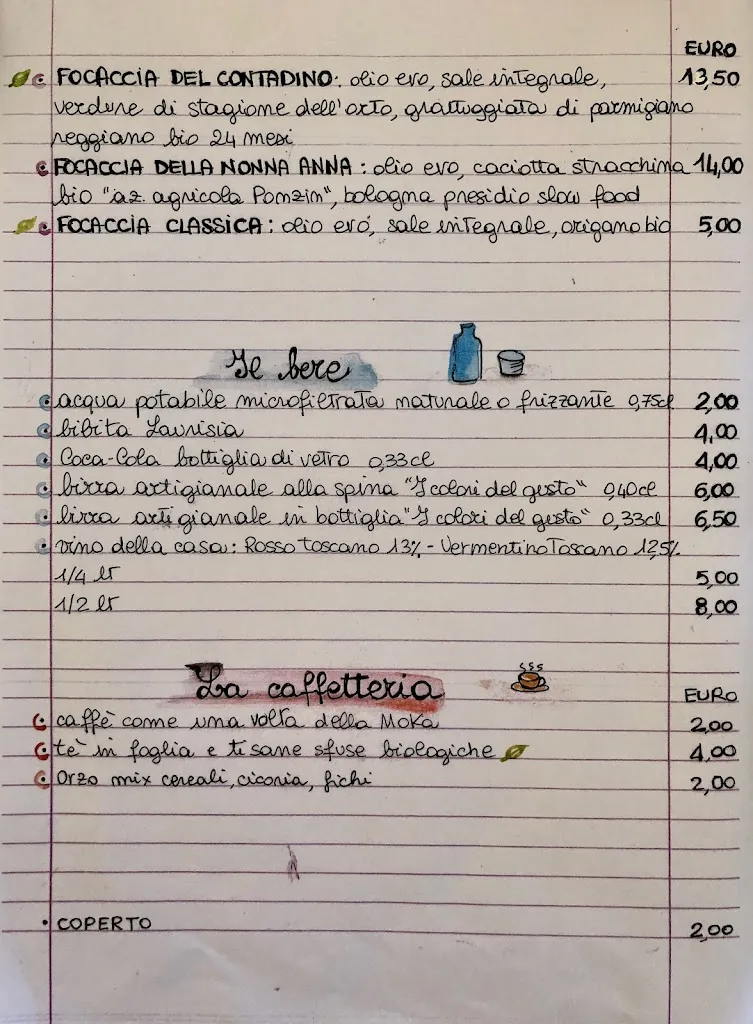 EURO
FOCACCIA DEL CONTADINO: olio evo, sale integrale, 13,50
verdure di stagione dell'orto, grattuggiata di parmigiano
reggiano bio 24 mesi
FOCACCIA DELLA NONNA ANNA: olio evo, caciotta stracchina 14,00
bio "az. agricola Ponzin", bologna presidio slow food
FOCACCIA CLASSICA: olio evo, sale integrale, origano bio 5,00
Il bere
acqua potabile microfiltrata naturale o frizzante 0,75cl 2,00
bibita Laurisia 4,00
Coca-Cola bottiglia di vetro 0,33cl 4,00
birra artigianale alla spina "I colori del gusto" 0,40cl 6,00
birra artigianale in bottiglia "I colori del gusto" 0,33cl 6,50
vino della casa: Rosso toscano 13% - Vermentino Toscano 12,5%
1/4 lt 5,00
1/2 lt 8,00
La caffetteria
EURO
caffè come una volta della Moka 2,00
tè in foglia e tisane sfuse biologiche 4,00
Orzo mix cereali, ciconia, fichi 2,00
COPERTO 2,00